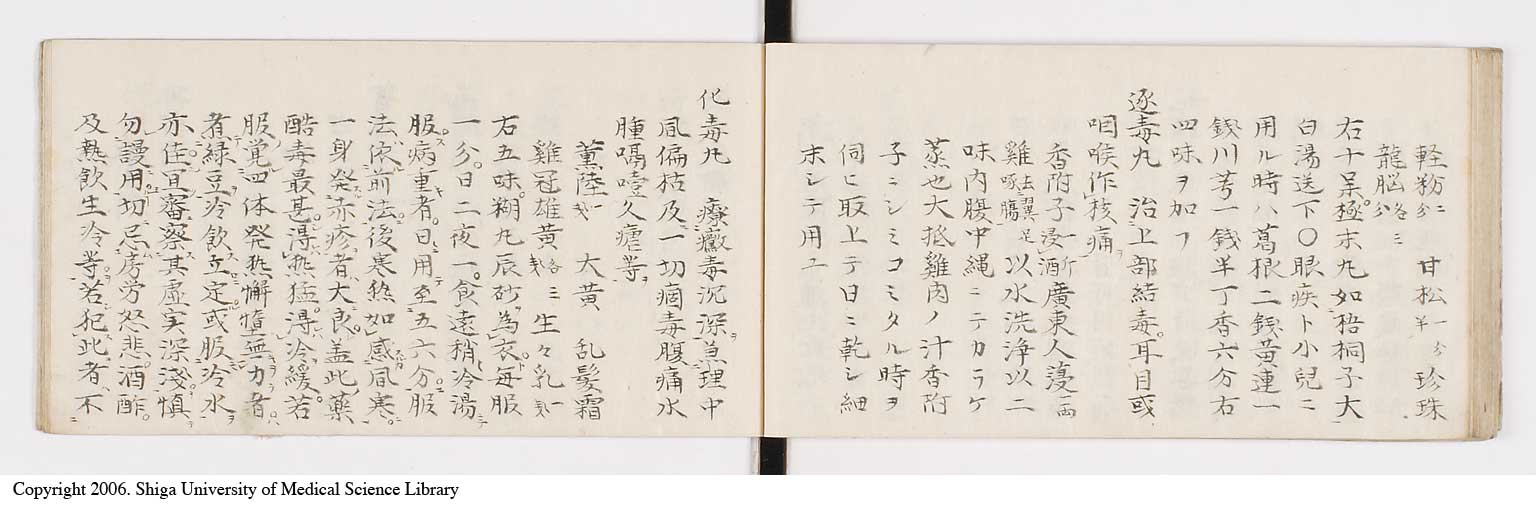 軽粉 甘松 珍珠
龍脳
右十呆極末丸如梧桐子大
白湯送下〇眼疾ト小兒ニ
用ル時ハ葛根二銭黄連一
銭川芎一銭半丁香六分右
四味ヲ加フ
逐毒丸 治上部結毒耳目或
咽喉作核痛
香附子 浸酒 廣東人漫
雞 去翼足啄腸 以水洗浄以二
味内腸中縄ニテカラケ
蒸也大抵雞肉ノ汁香附
子ニシミコミタル時ヲ
伺ヒ取上テ日ニ乾シ細
末シテ用ユ
化毒丸 療黴毒沉深兼理中
風偏枯及一切痼毒腹痛水
腫嗝噎久瘧等
薫陸 大黄 乱髪霜
雞冠雄黄 生々乳
右五味糊丸辰砂為衣毎服
一分日二夜一食遠稍冷湯
服病重者日用至五六分服
法依前法後寒熱如感風寒
一身発赤疹者大良盖此薬
酷毒最甚得熱猛得冷緩若
服覚四体発熱懈墮無力者
者緑豆冷飲立定或服冷水
亦佳宜審察其虚実深淺慎
勿謾用切忌房労怒悲酒酢
及熱飲生冷等若犯此者不
Copyright 2006. Shiga University of Medical Science Library